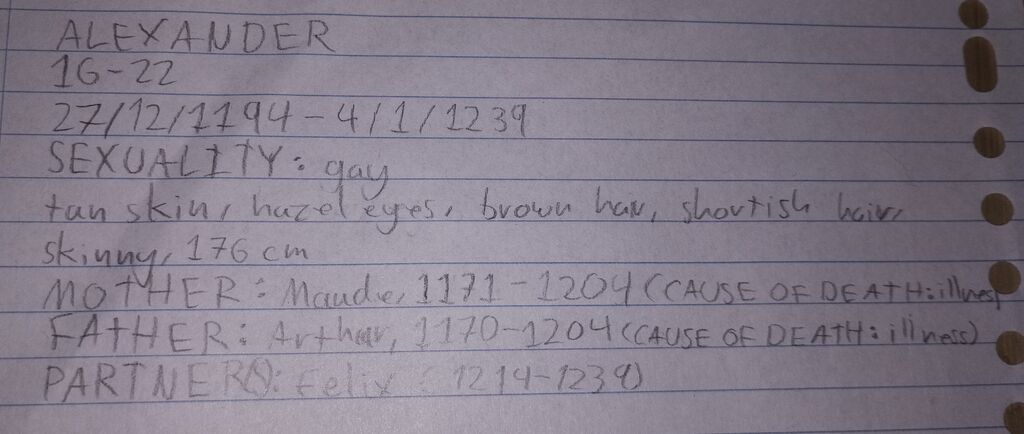 ALEXANDER
16-22
27/12/1194 - 4/1/1239
SEXUALITY: gay
tan skin, hazel eyes, brown hair, shortish hair,
skinny, 176 cm
MOTHER: Maude, 1171-1204 (CAUSE OF DEATH: illness)
FATHER: Arthur, 1170-1204 (CAUSE OF DEATH: illness)
PARTNER(S): Felix (1214-1239)